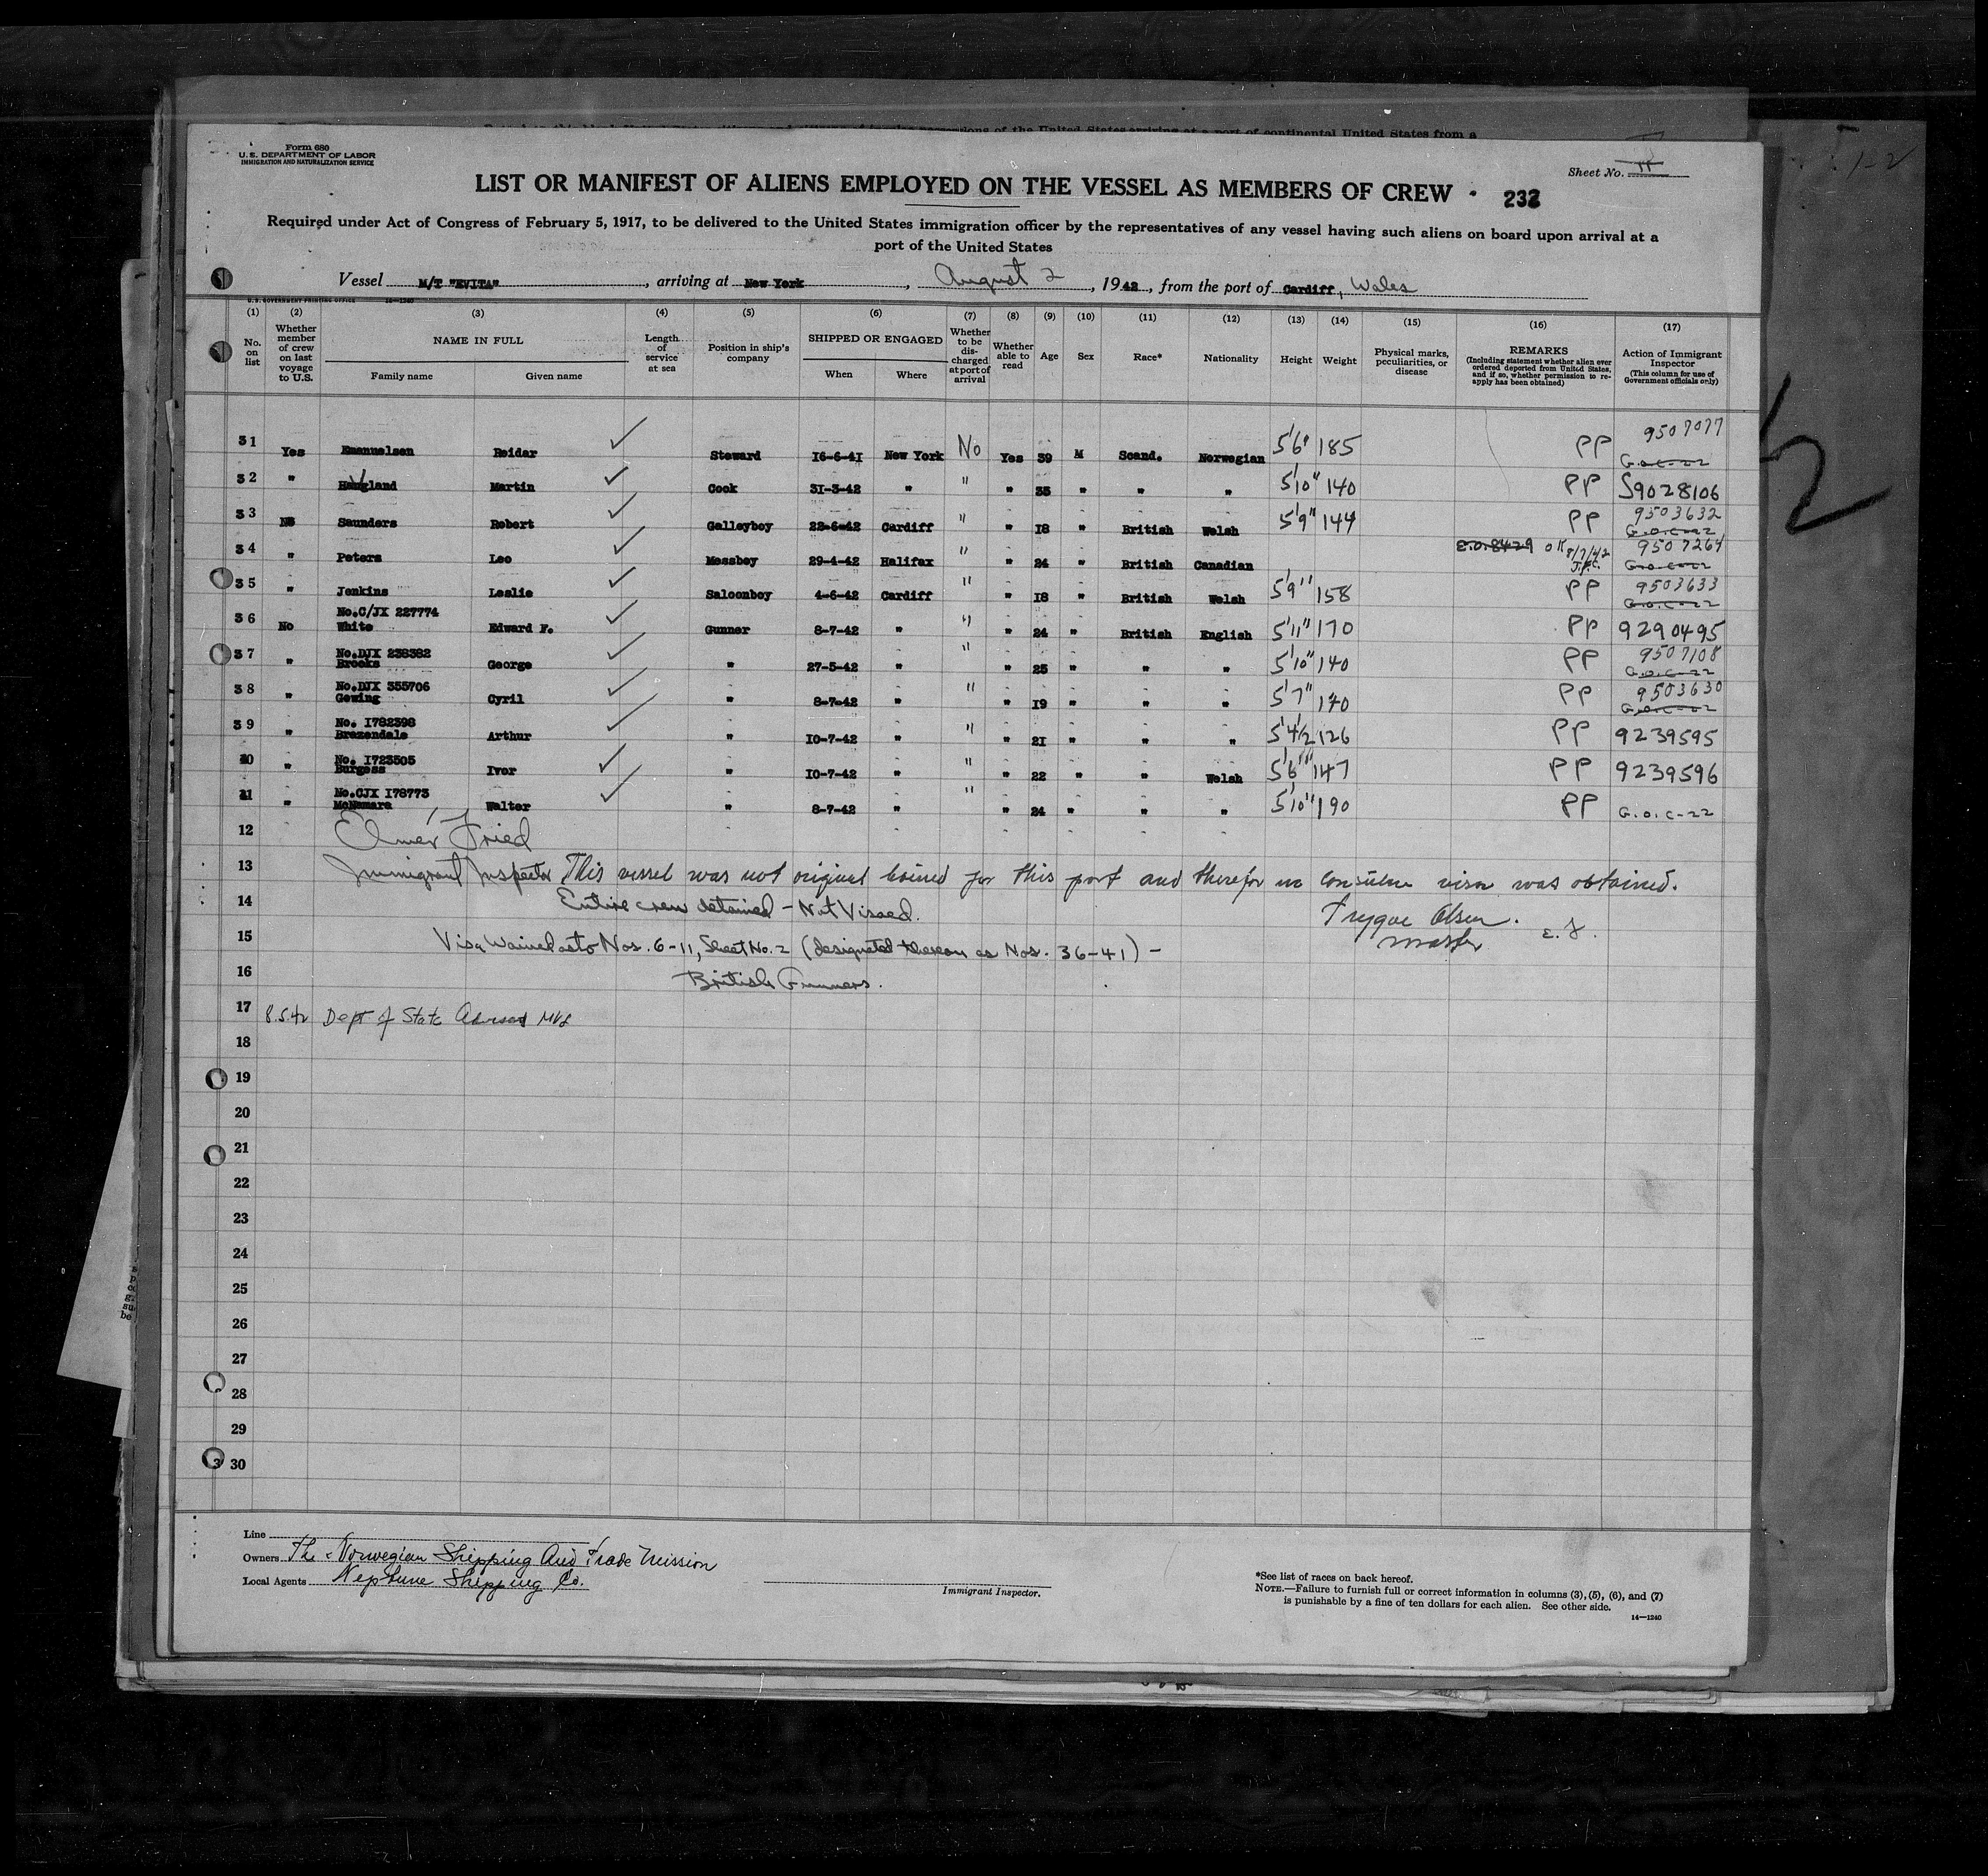 Form 680
U.S. DEPARTMENT OF LABOR
IMMIGRATION AND NATURALIZATION SERVICE
Sheet No.
LIST OR MANIFEST OF ALIENS EMPLOYED ON THE VESSEL AS MEMBERS OF CREW 232
Required under Act of Congress of February 5, 1917, to be delivered to the United States immigration officer by the representatives of any vessel having such aliens on board upon arrival at a
port of the United States
Vessel M/T "EVITA", arriving at New York, August 2, 1942, from the port of Cardiff, Wales
U.S. GOVERNMENT PRINTING OFFICE 14-1240
(1) No. on list (2) Whether member of crew on last voyage to U.S. (3) NAME IN FULL Family name Given name (4) Length of service at sea (5) Position in ship's company (6) SHIPPED OR ENGAGED When Where (7) Whether to be discharged at port of arrival (8) Whether able to read (9) Age (10) Sex (11) Race* (12) Nationality (13) Height (14) Weight (15) Physical marks, peculiarities, or disease (16) REMARKS (Including statement whether alien ever ordered deported from United States, and if so, whether permission to reapply has been obtained) (17) Action of Immigrant Inspector (This column for use of Government officials only)
31 Yes Emanuelsen Reidar Steward 16-6-41 New York No Yes 39 M Scand. Norwegian 5'6" 185 PP 9507077 G.O.C-22
32 " Haugland Martin Cook 31-3-42 " " " 35 " " " 5'10" 140 PP S9028106
33 No Saunders Robert Galleyboy 22-6-42 Cardiff " " 18 " British Welsh 5'9" 144 PP 9503632 G.O.C-22
34 " Peters Leo Messboy 29-4-42 Halifax " " 24 " British Canadian E.O. 8429 OK 8/7/42 J.F.C. 9507264 G.O.C-22
35 " Jenkins Leslie Saloonboy 4-6-42 Cardiff " " 18 " British Welsh 5'9" 158 PP 9503633 G.O.C-22
36 No No.C/JX 227774 White Edward F. Gunner 8-7-42 " " " 24 " British English 5'11" 170 PP 9290495
37 " No.DJX 238382 Brooks George " 27-5-42 " " " 25 " " " 5'10" 140 PP 9507108 G.O.C-22
38 " No.DJX 355706 Gewing Cyril " 8-7-42 " " " 19 " " " 5'7" 140 PP 9503630 G.O.C-22
39 " No. 1782398 Brazendale Arthur " 10-7-42 " " " 21 " " " 5'4½ 126 PP 9239595
40 " No. 1723505 Burgess Ivor " 10-7-42 " " " 22 " " Welsh 5'6" 147 PP 9239596
41 " No.CJX 178773 McNamara Walter " 8-7-42 " " " 24 " " " 5'10" 190 PP G.O.C-22
12 Elmer Fried
13 Immigrant Inspector This vessel was not original bound for this port and therefor no consular visa was obtained.
14 Entire crew detained - Not Visaed. Trygve Olsen.
Master E.F.
15 Visa Waived as to Nos. 6-11, Sheet No. 2 (designated thereon as Nos. 36-41) -
16 British Gunners.
17 8.5.42 Dept of State Advised
18
19
20
21
22
23
24
25
26
27
28
29
30
Line
Owners The Norwegian Shipping And Trade Mission
Local Agents Neptune Shipping Co.
Immigrant Inspector.
*See list of races on back hereof.
NOTE.—Failure to furnish full or correct information in columns (3), (5), (6), and (7)
is punishable by a fine of ten dollars for each alien. See other side.
14—1240